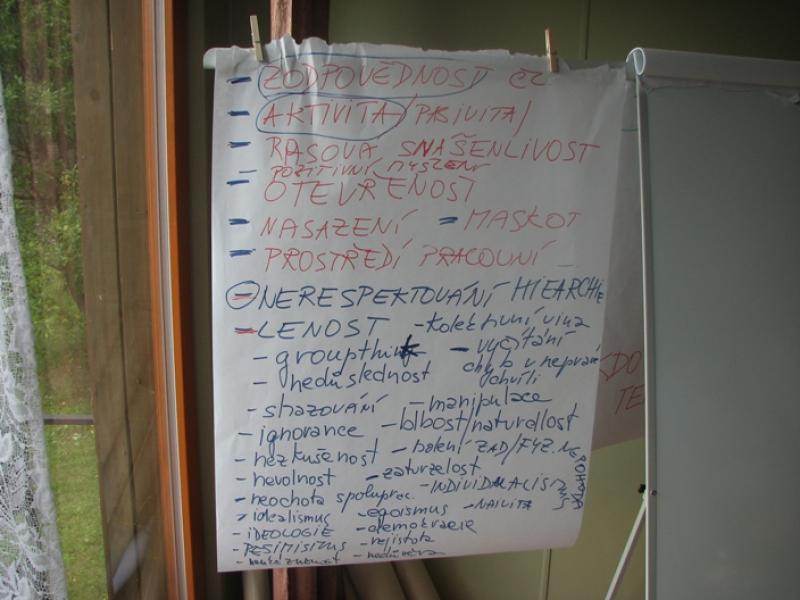 - ZODPOVĚDNOST
- AKTIVITA /PASIVITA/
- RASOVA SNAŠENLIVOST
- POZITIVNÍ MYŠLENÍ
- OTEVŘENOST
- NASAZENÍ - MASKOT
- PROSTŘEDÍ PRACOVNÍ
- NERESPEKTOVÁNÍ HIEARCHIE
- LENOST - kolektivní vina
- groupthink - vyčítání chyb v nepravé chvíli
- nedůslednost
- shazování - manipulace
- ignorance - blbost/naturdlost
- nezkušenost - bolení ZAD/FYZ. NEPOHODA
- nevolnost - zatvrzelost
- neochota spoluprac. - INDIVIDUALISMUS
- idealismus - egoismus - NAIVITA
- IDEOLOGIE - demokracie
- PESIMISMUS - nejistota
- nedůvěra
KDO
TE